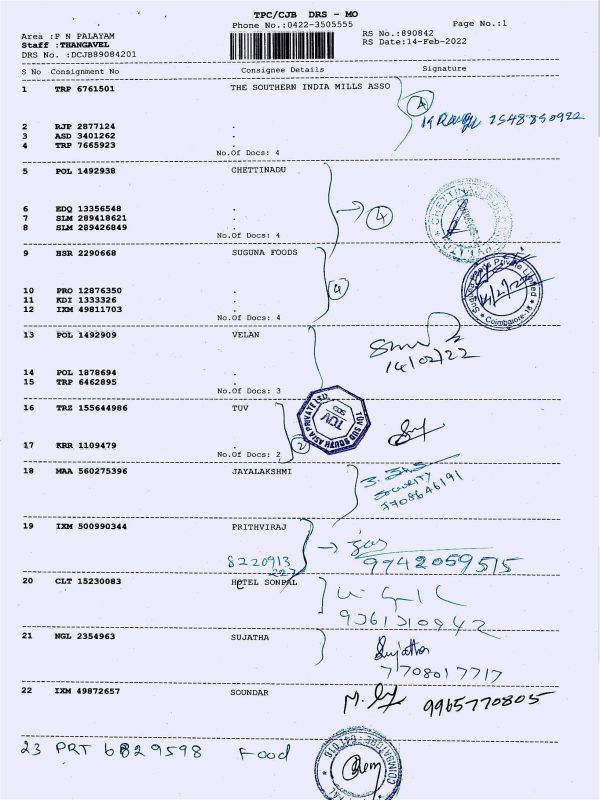 TPC/CJB DRS - MO
Phone No.:0422-3505555 Page No.:1
Area :P N PALAYAM RS No.:890842
Staff :THANGAVEL RS Date:14-Feb-2022
DRS No. :DCJB89084201
S No Consignment No Consignee Details Signature
1 TRP 6761501 THE SOUTHERN INDIA MILLS ASSO
4
2 RJP 2877124 .
3 ASD 3401262 .
4 TRP 7665923 .
No.Of Docs: 4
5 POL 1492938 CHETTINADU
4
6 EDQ 13356548 .
7 SLM 289418621 .
8 SLM 289426849 .
No.Of Docs: 4
9 HSR 2290668 SUGUNA FOODS
4
Private Limited
Coimbatore-18
10 PRO 12876350 .
11 KDI 1333326 .
12 IXM 49811703 .
No.Of Docs: 4
13 POL 1492909 VELAN
14/02/22
14 POL 1878694 .
15 TRP 6462895 .
No.Of Docs: 3
16 TRZ 155644986 TUV
TUV SUD SOUTH ASIA PRIVATE LTD.
TUV
SUD
17 KRR 1109479 .
No.Of Docs: 2
2
18 MAA 560275396 JAYALAKSHMI
Security
7708646191
19 IXM 500990344 PRITHVIRAJ
8220913
227
9942059515
20 CLT 15230083 HOTEL SONPAL
9361310942
21 NGL 2354963 SUJATHA
Sujatha
7708017717
22 IXM 49872657 SOUNDAR
9965770805
23 PRT 6829598 Food
COIMBATORE - 641018